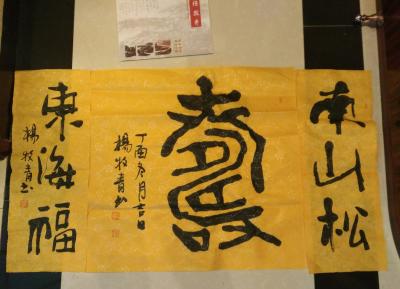 南山松
壽
丁酉冬月吉日
楊牧青书
東海福
楊牧青书